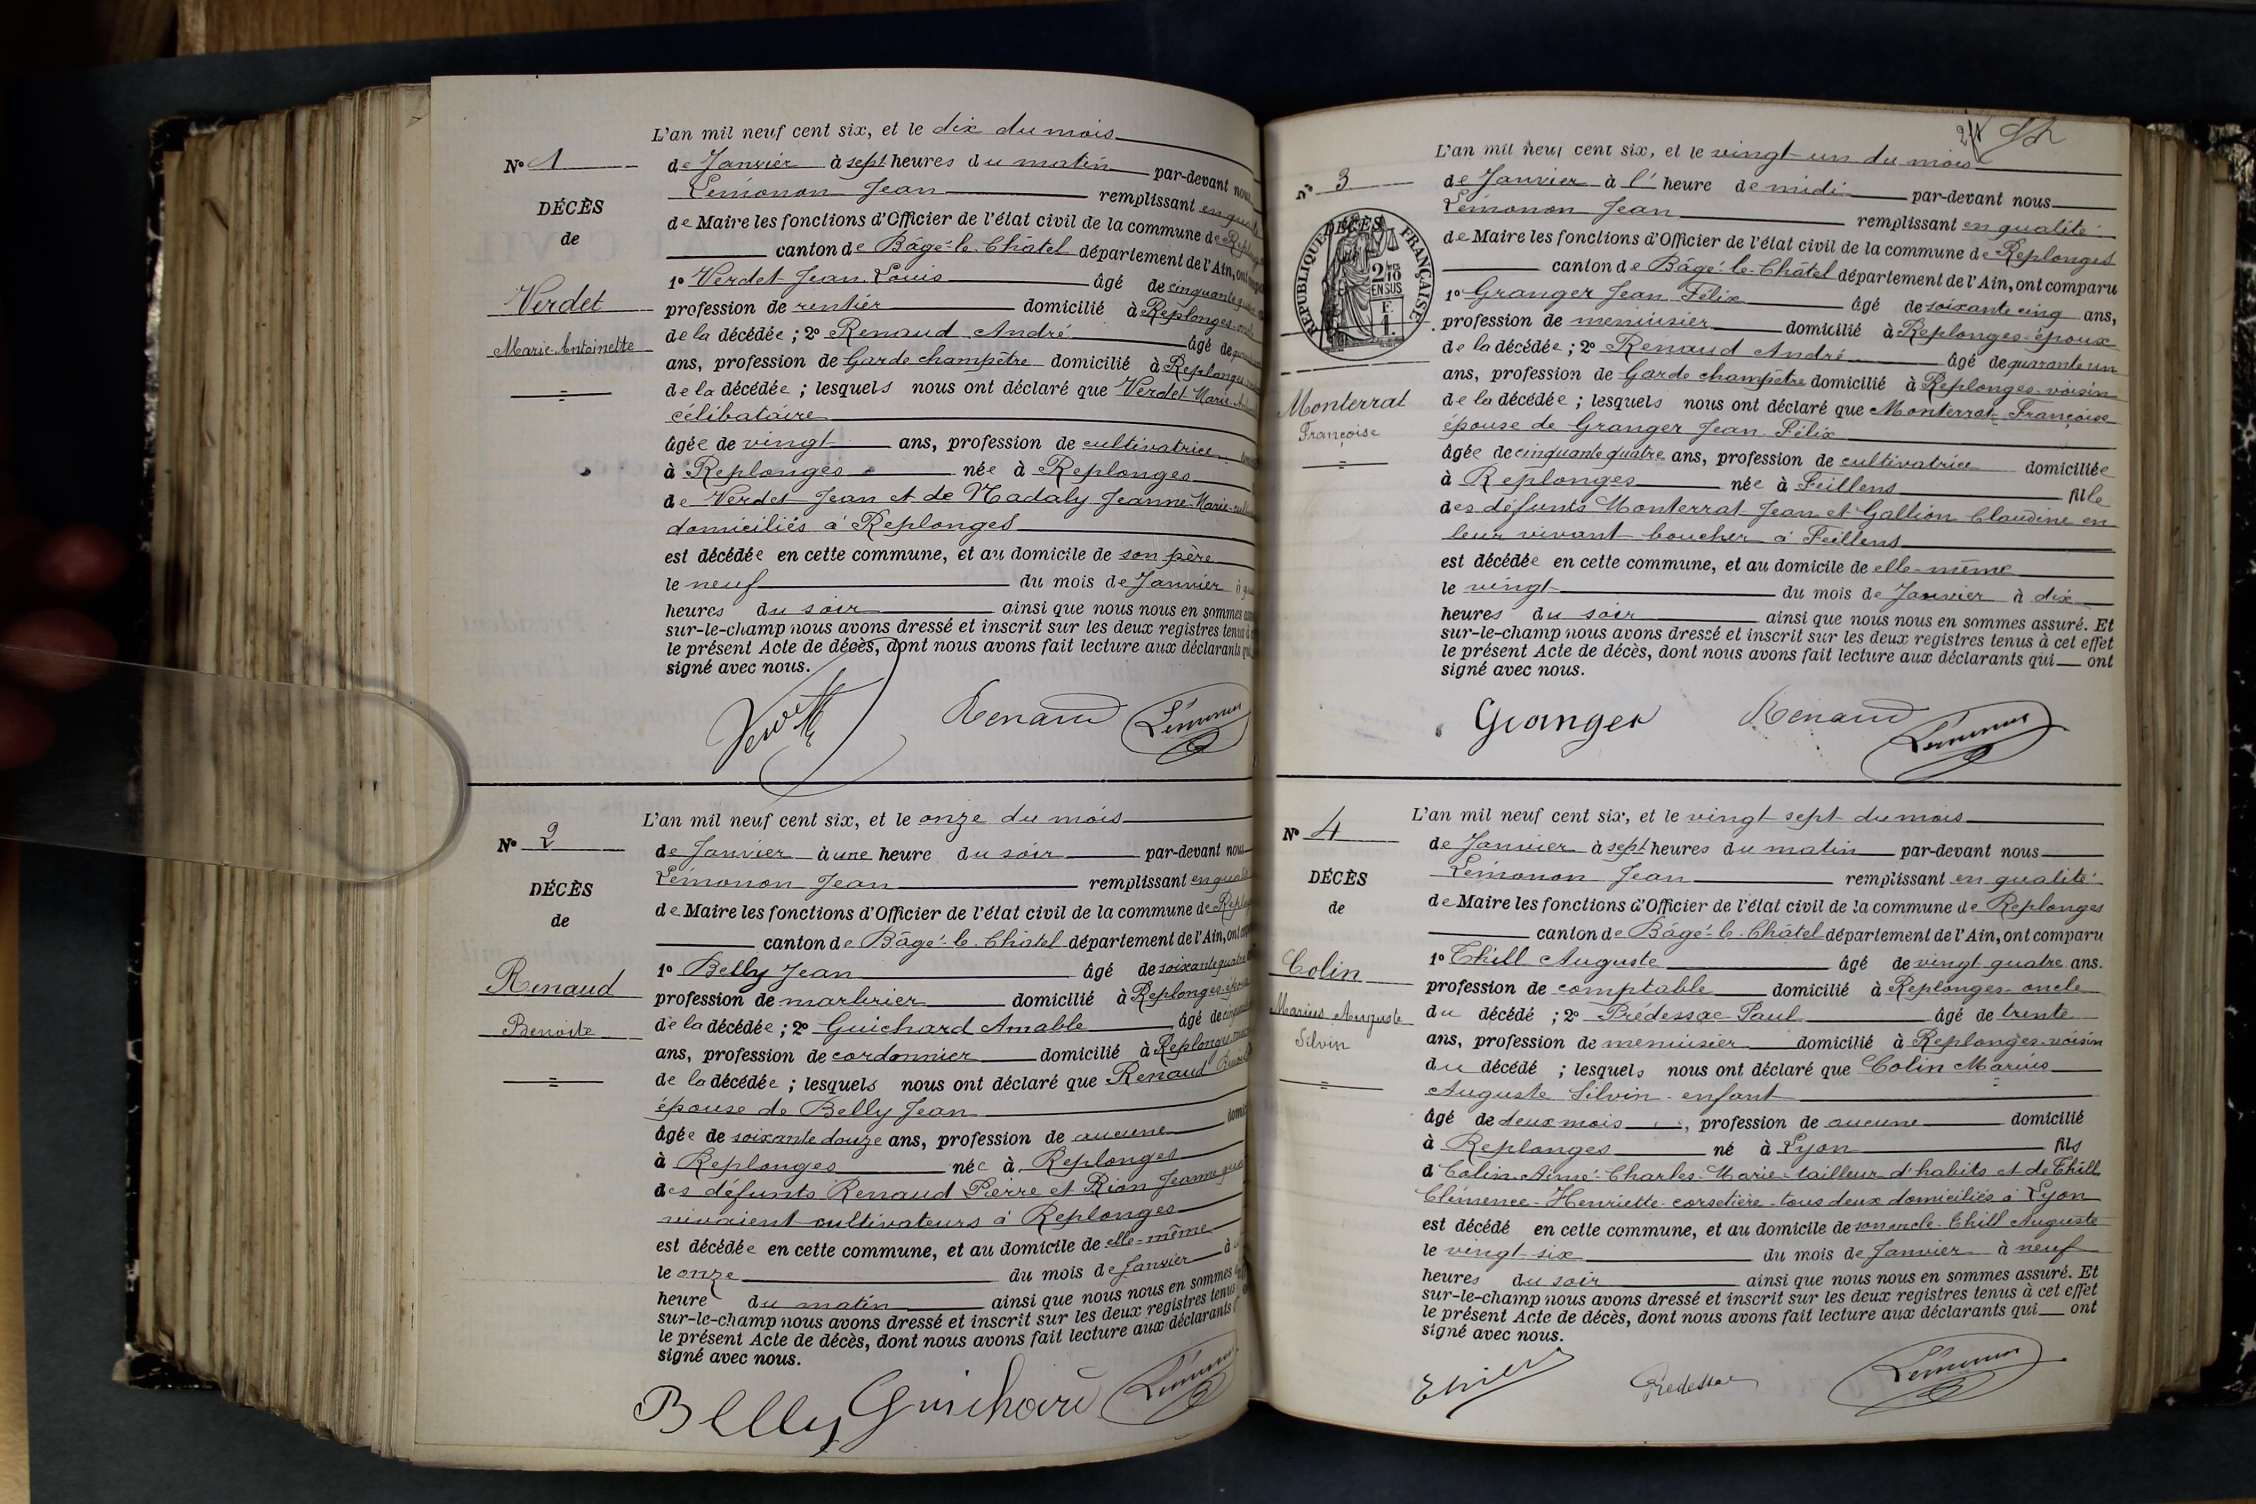 L'an mil neuf cent six, et le dix du mois
N° 1
de Janvier à sept heures du matin par-devant nous
Lémonon Jean remplissant en qualité
DÉCÈS
de Maire les fonctions d'Officier de l'état civil de la commune de Replonges
de
canton de Bâgé-le-Châtel département de l'Ain, ont
1° Verdet Jean Louis âgé de cinquante
Verdet
profession de rentier domicilié à Replonges oncle
de la décédée ; 2° Renaud André âgé de
Marie Antoinette
ans, profession de Garde champêtre domicilié à Replonges
de la décédée ; lesquels nous ont déclaré que Verdet Marie
célibataire
âgée de vingt ans, profession de cultivatrice
à Replonges née à Replonges
de Verdet Jean et de Nadaly Jeanne Marie
domiciliés à Replonges
est décédée en cette commune, et au domicile de son père
le neuf du mois de Janvier à
heures du soir ainsi que nous nous en sommes
sur-le-champ nous avons dressé et inscrit sur les deux registres tenus à
le présent Acte de décès, dont nous avons fait lecture aux déclarants qui
signé avec nous.
Renaud Lémonon
L'an mil neuf cent six, et le onze du mois
N° 2
de Janvier à une heure du soir par-devant nous
Lémonon Jean remplissant en qualité
DÉCÈS
de Maire les fonctions d'Officier de l'état civil de la commune de Replonges
de
canton de Bâgé-le-Châtel département de l'Ain, ont
1° Belly Jean âgé de soixante quatre
Renaud
profession de marbrier domicilié à Replonges époux
Benoite
de la décédée ; 2° Guichard Amable âgé de
ans, profession de cordonnier domicilié à Replonges
de la décédée ; lesquels nous ont déclaré que Renaud Benoite
épouse de Belly Jean
âgée de soixante douze ans, profession de aucune
à Replonges née à Replonges
des défunts Renaud Pierre et Rion Jeanne
vivaient cultivateurs à Replonges
est décédée en cette commune, et au domicile de elle-même
le onze du mois de Janvier à
heure du matin ainsi que nous nous en sommes
sur-le-champ nous avons dressé et inscrit sur les deux registres tenus
le présent Acte de décès, dont nous avons fait lecture aux déclarants
signé avec nous.
Belly Guichard Lémonon
L'an mil neuf cent six, et le vingt-un du mois
N° 3
de Janvier à l' heure de midi par-devant nous
Lémonon Jean remplissant en qualité
DÉCÈS
RÉPUBLIQUE FRANÇAISE
2/10 EN SUS
F. 1.
de Maire les fonctions d'Officier de l'état civil de la commune de Replonges
canton de Bâgé-le-Châtel département de l'Ain, ont comparu
1° Granger Jean Félix âgé de soixante cinq ans,
profession de menuisier domicilié à Replonges époux
de la décédée ; 2° Renaud André âgé de quarante un
ans, profession de Garde champêtre domicilié à Replonges voisin
Monterrat
Françoise
de la décédée ; lesquels nous ont déclaré que Monterrat Françoise
épouse de Granger Jean Félix
âgée de cinquante quatre ans, profession de cultivatrice domiciliée
à Replonges née à Feillens fille
des défunts Monterrat Jean et Gallion Claudine en
leur vivant boucher à Feillens
est décédée en cette commune, et au domicile de elle-même
le vingt du mois de Janvier à dix
heures du soir ainsi que nous nous en sommes assuré. Et
sur-le-champ nous avons dressé et inscrit sur les deux registres tenus à cet effet
le présent Acte de décès, dont nous avons fait lecture aux déclarants qui ont
signé avec nous.
Granger Renaud Lémonon
L'an mil neuf cent six, et le vingt sept du mois
N° 4
de Janvier à sept heures du matin par-devant nous
Lémonon Jean remplissant en qualité
DÉCÈS
de Maire les fonctions d'Officier de l'état civil de la commune de Replonges
de
canton de Bâgé-le-Châtel département de l'Ain, ont comparu
1° Thill Auguste âgé de vingt quatre ans.
Colin
profession de comptable domicilié à Replonges oncle
Marius Auguste
Silvin
du décédé ; 2° Prédessac Paul âgé de trente
ans, profession de menuisier domicilié à Replonges voisin
du décédé ; lesquels nous ont déclaré que Colin Marius
Auguste Silvin enfant
âgé de deux mois, profession de aucune domicilié
à Replonges né à Lyon fils
d Colin Aimé-Charles-Marie tailleur d'habits et de Thill
Clémence-Henriette corsetière tous deux domiciliés à Lyon
est décédé en cette commune, et au domicile de son oncle Thill Auguste
le vingt six du mois de Janvier à neuf
heures du soir ainsi que nous nous en sommes assuré. Et
sur-le-champ nous avons dressé et inscrit sur les deux registres tenus à cet effet
le présent Acte de décès, dont nous avons fait lecture aux déclarants qui ont
signé avec nous.
Thill Prédessac Lémonon